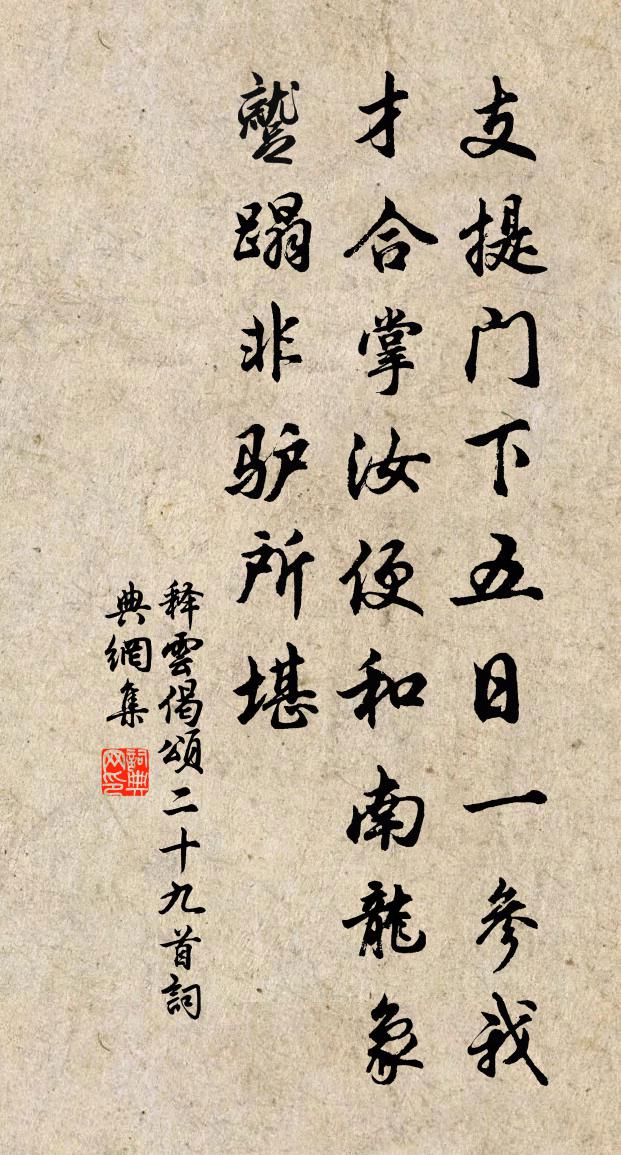 支提门下五日一参我
才合掌汝便和南龍象
蹵蹋非驴所堪
释雲偈頌二十九首詞
典網集
詞典网印